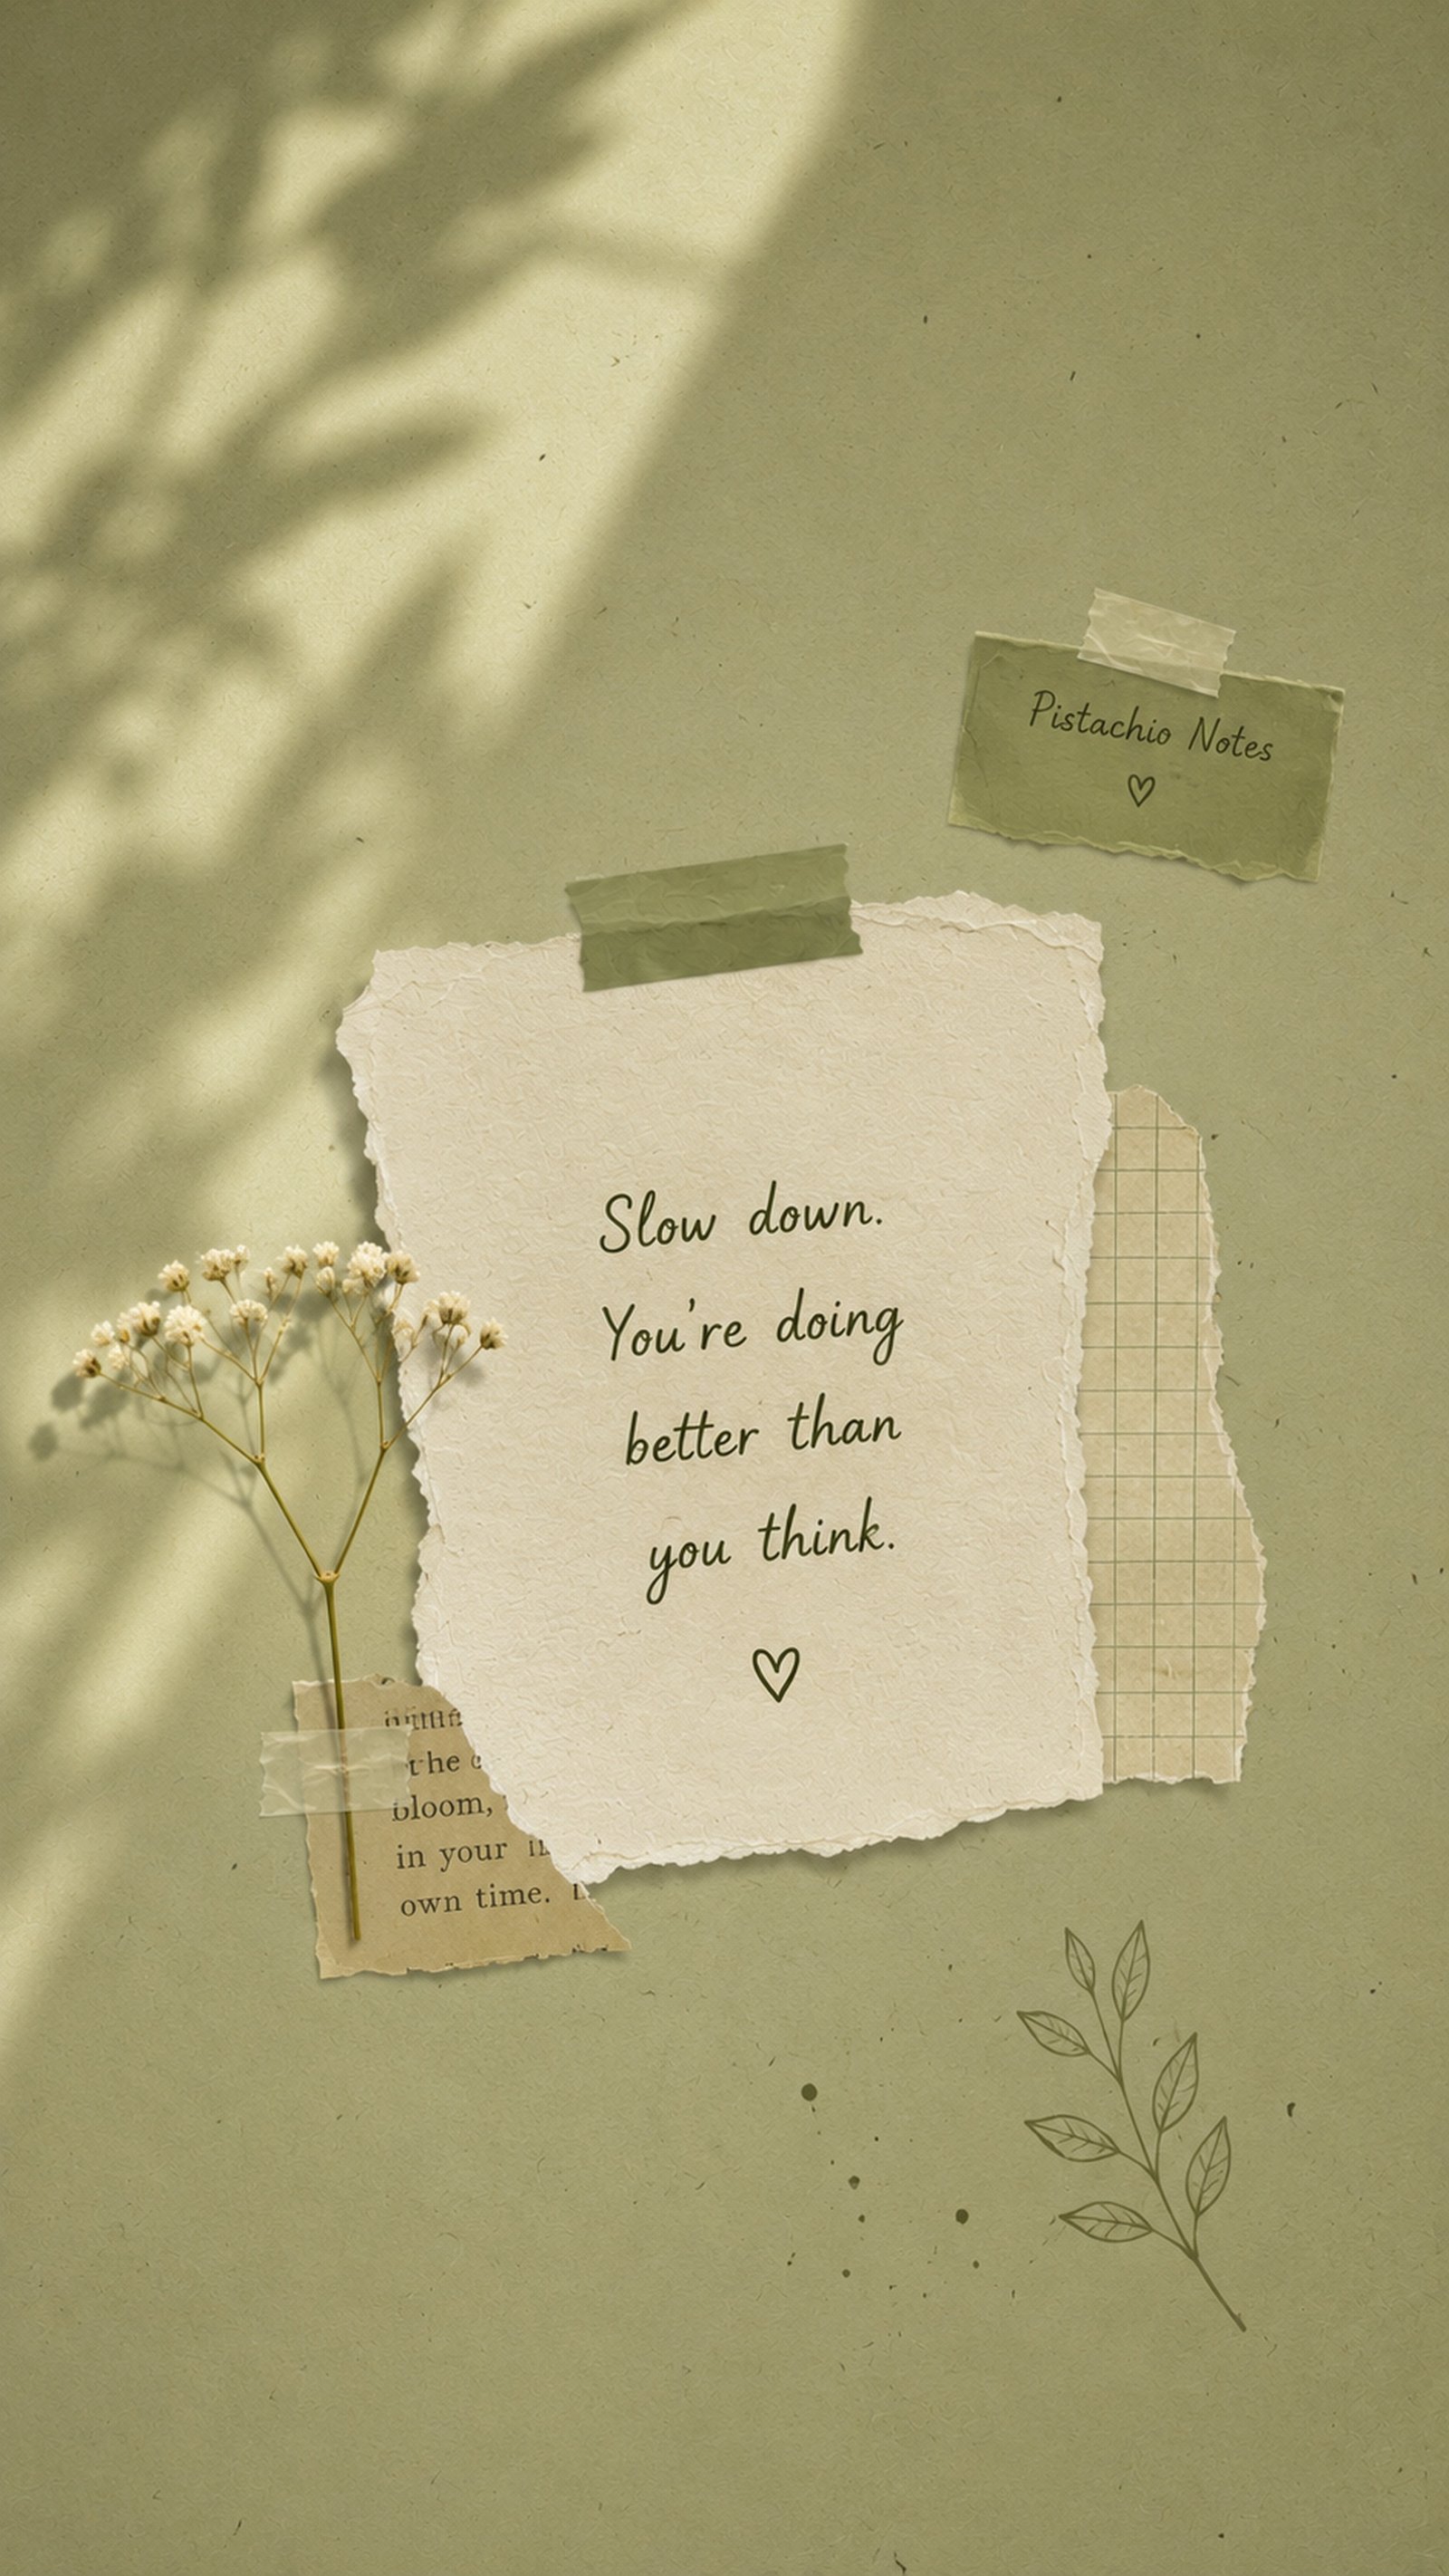 Pistachio Notes
Slow down.
You're doing
better than
you think.
the
bloom,
in your
own time.